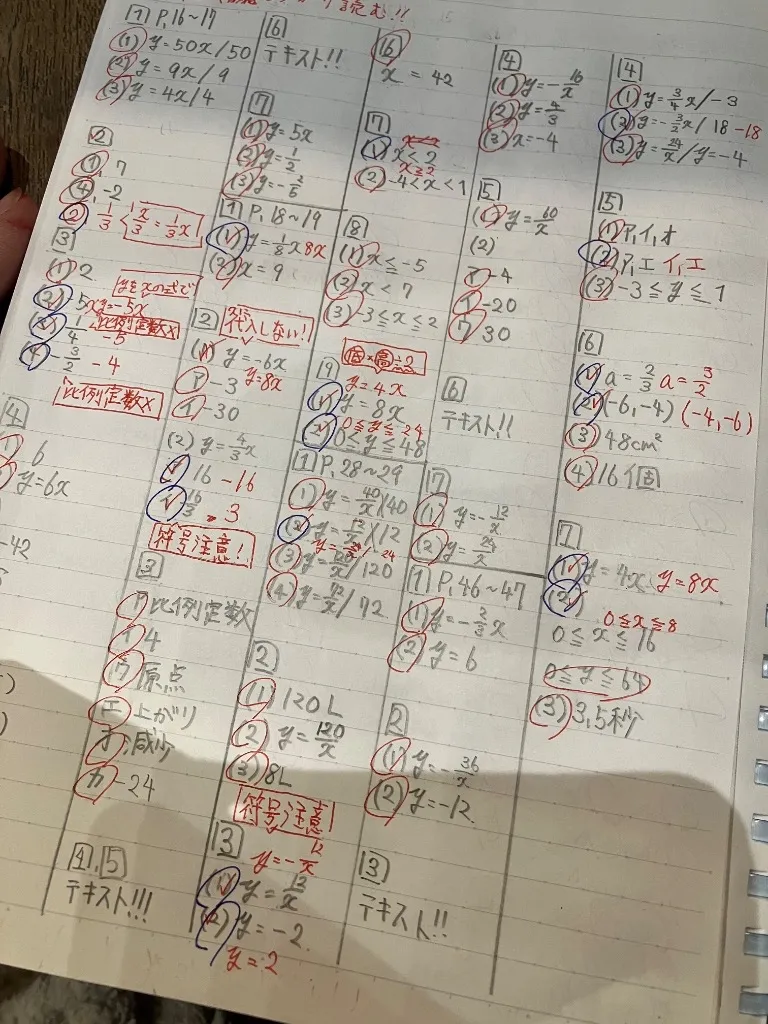 読む!!
1 P.16~17
(1) y=50x/50
(2) y=9x/9
(3) y=4x/4
2
① 7
④, -2
② 1/3 x/3=1/3x
3
(1) 2
yをxの式で
(2) 5x y=-5x
(3) 1/4 -5
比例定数×
(4) -3/2 -4
比例定数×
4
6
y=6x
-42
6
テキスト!!
7
(1) y=5x
(2) y=1/2
(3) y=-2/5
1 P.18~19
(1) y=1/8x 8x
(2) x=9
2 代入しない!
(1) y=-6x
y=8x
ア -3
イ -30
(2) y=4/3x
ア 16 -16
イ 16/3 3
符号注意!
3
ア 比例定数
イ 4
ウ 原点
エ 上がり
オ 減少
カ -24
4, 5
テキスト!!!
6
x=42
7
(1) x<2
x≧2
(2) -4<x<1
8
(1) x≦-5
(2) x<7
(3) -3≦x≦2
9 底×高÷2
y=4x
(1) y=8x
0≦y≦24
(2) 0≦y≦48
1 P.28~29
(1) y=40/x/40
(2) y=12/x/12
(3) y=120/x/120
(4) y=72/x/72
2
(1) 120L
(2) y=120/x
(3) 8L
符号注意
3 y=-12/x
(1) y=12/x
(2) y=-2
y=2
4
(1) y=-16/x
(2) y=4/3
(3) x=-4
5
(1) y=60/x
(2)
ア -4
イ -20
ウ 30
6
テキスト!!
7
(1) y=-12/x
(2) y=24/x
1 P.46~47
(1) y=-2/3x
(2) y=6
2
(1) y=-36/x
(2) y=-12
3
テキスト!!
4
(1) y=3/4x/-3
(2) y=-3/2x/18 -18
(3) y=24/x/y=-4
5
(1) ア,イ,オ
(2) ア,エ イ,エ
(3) -3≦y≦1
6
(1) a=2/3 a=3/2
(2) (-6,-4) (-4,-6)
(3) 48cm²
(4) 16個
7
(1) y=4x y=8x
(2)
0≦x≦8
0≦x≦16
0≦y≦64
(3) 3,5秒